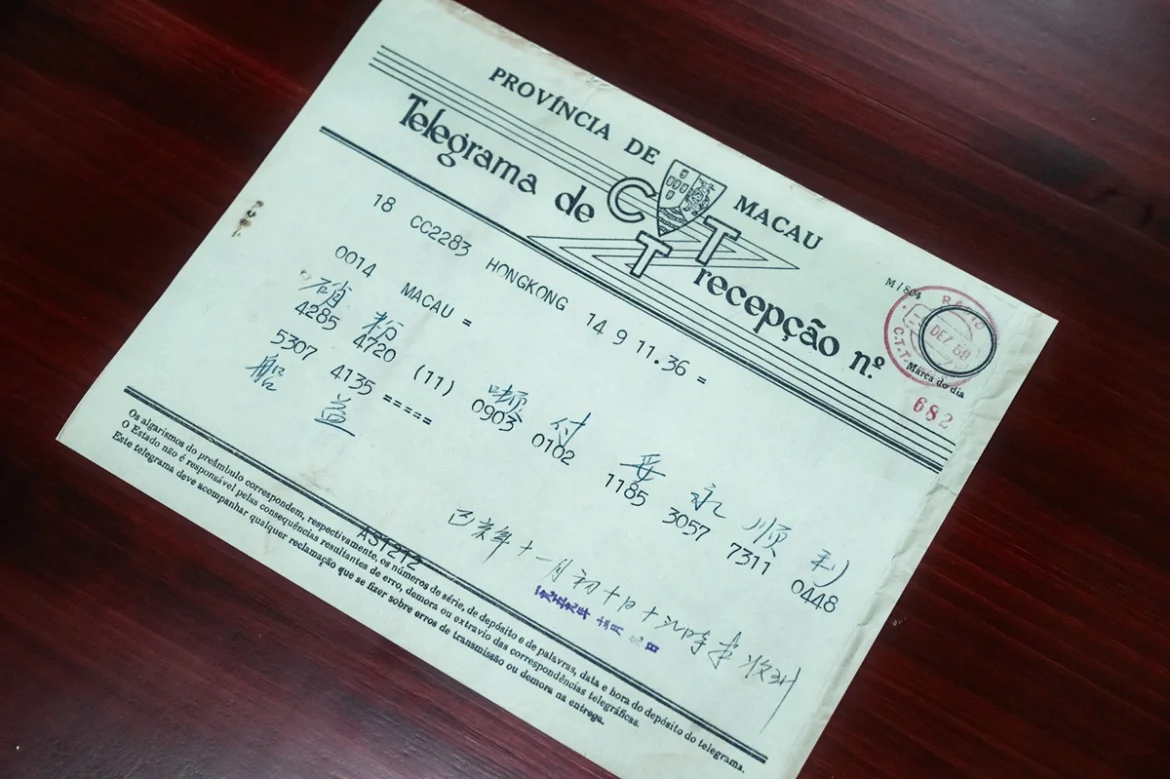 PROVÍNCIA DE MACAU
Telegrama de CTT recepção n.º
M/804
RÁDIO
DEZ 59
C.T.T.
Marca do dia
682
18 CC2283 HONGKONG 14 9 11.36 =
0014 MACAU =
付 永 順 利
4285 4720 (11) 0903 0102 1185 3057 7311 0448
5307 4135 =====
船 益
己亥年十一月初十日十 時 收到
AS1212
Os algarismos do preâmbulo correspondem, respectivamente, os números de série, de depósito e de palavras, data e hora do depósito do telegrama.
O Estado não é responsável pelas consequências resultantes de erro, demora ou extravio das correspondências telegráficas.
Este telegrama deve acompanhar qualquer reclamação que se fizer sobre erros de transmissão ou demora na entrega.